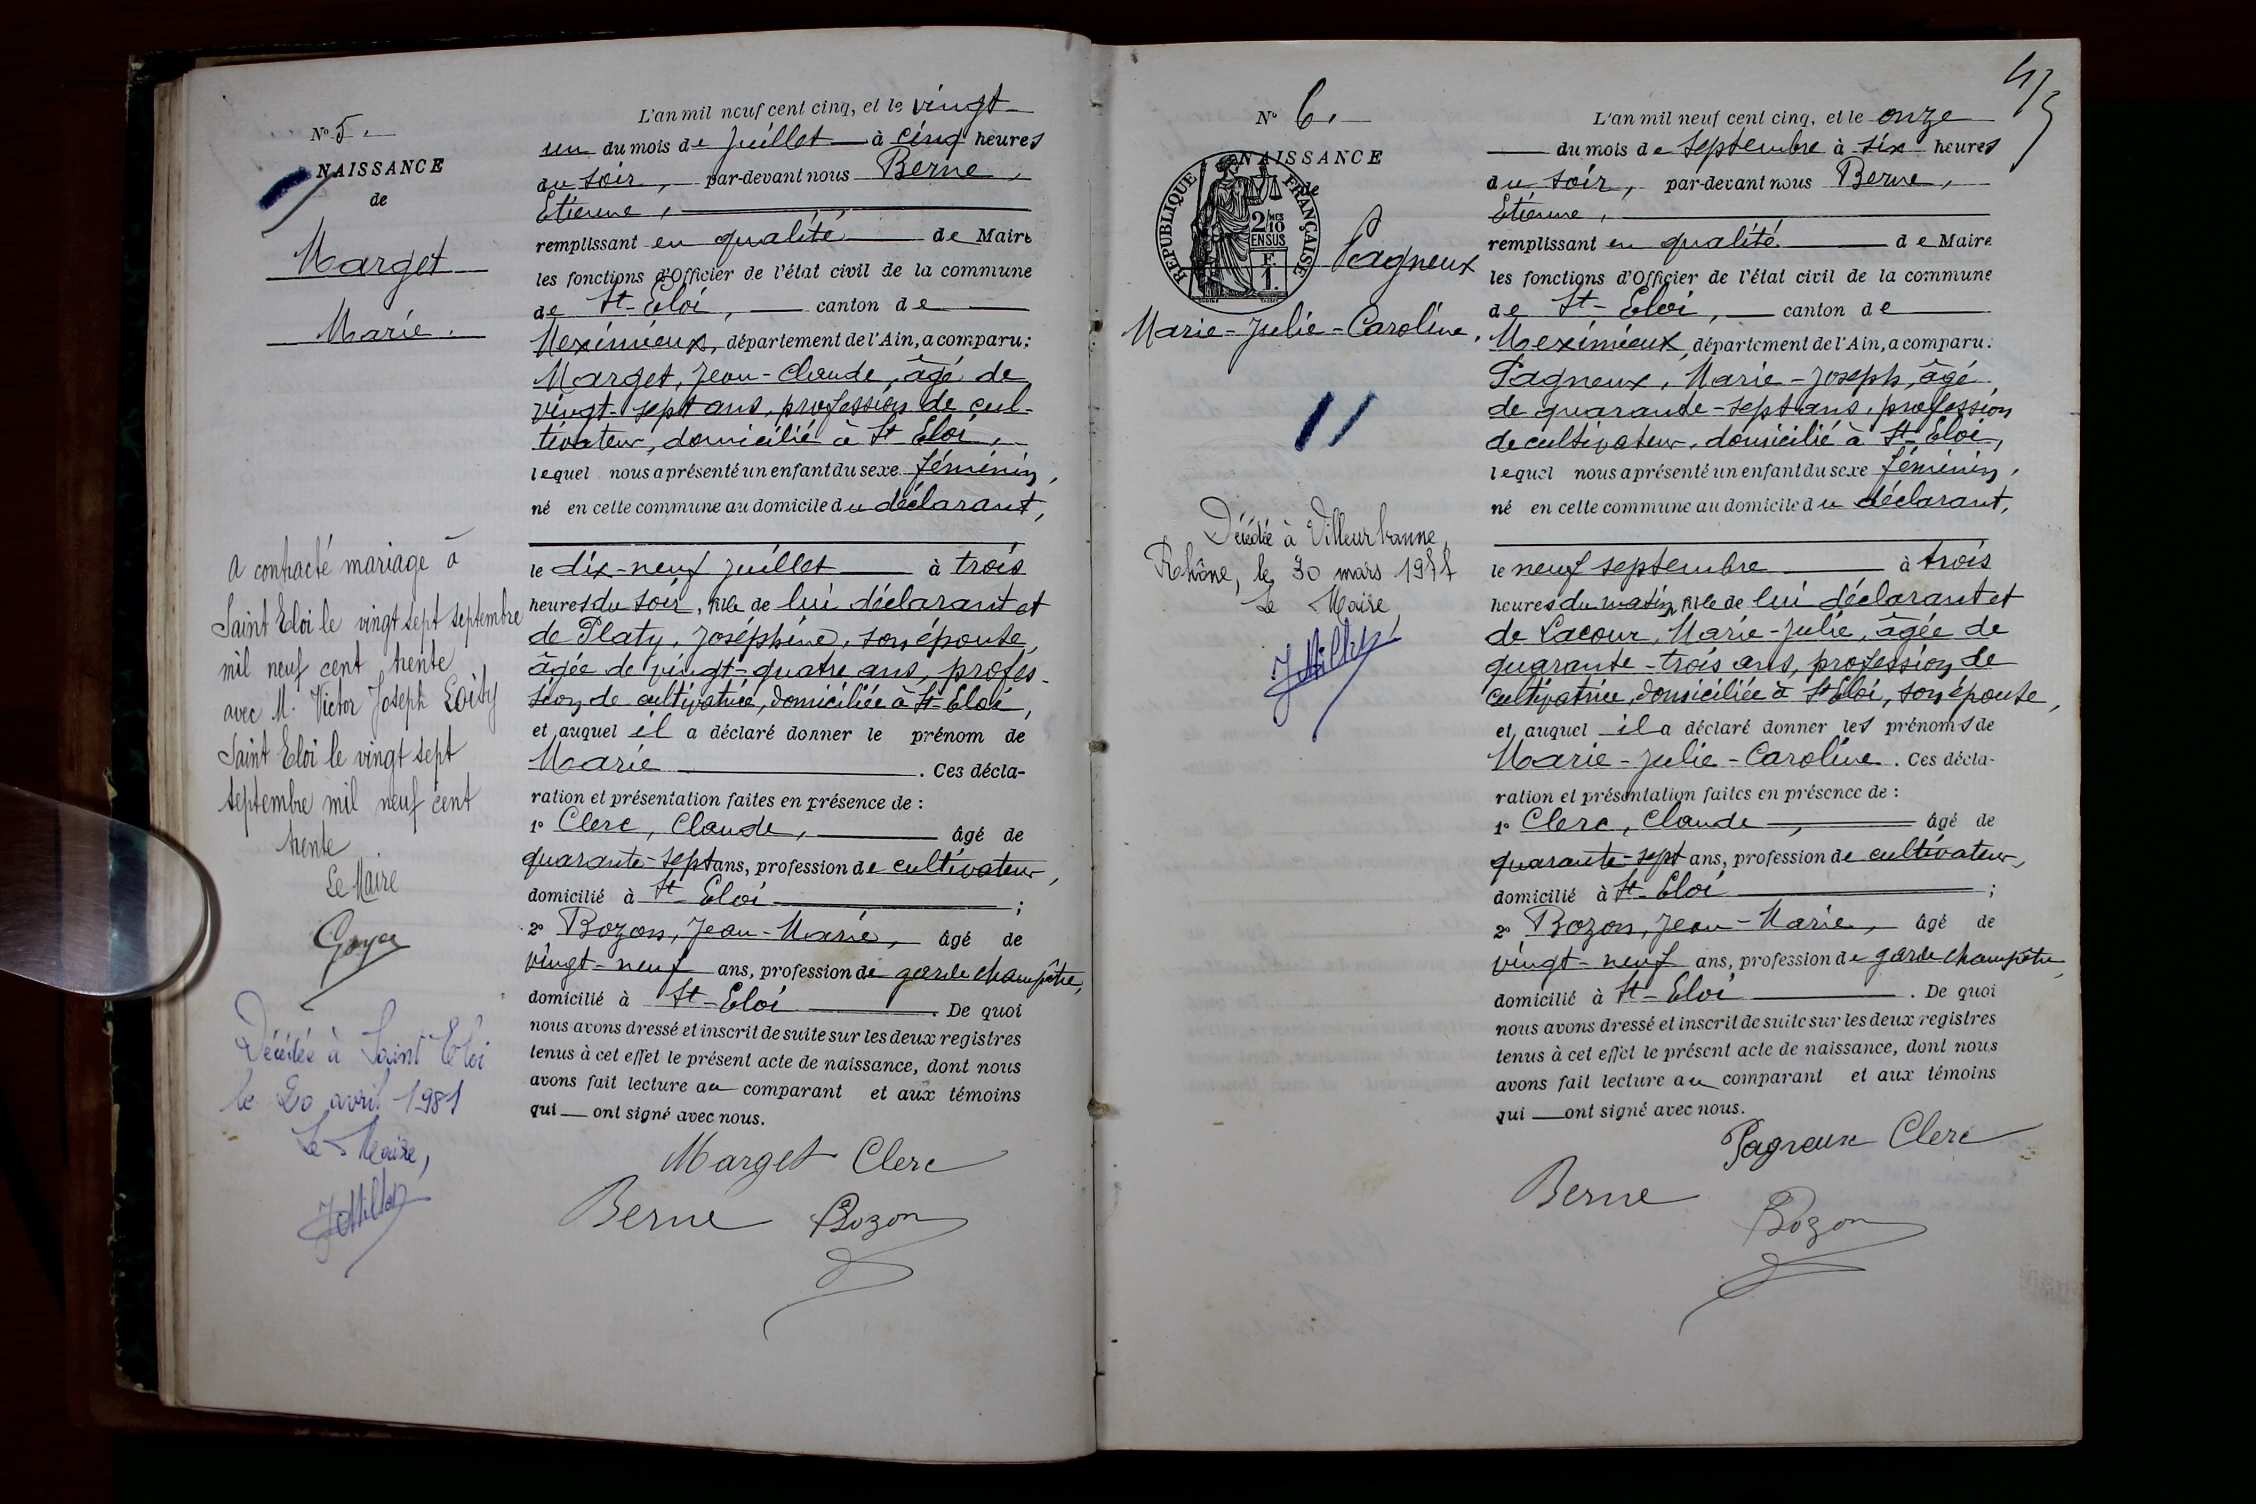 N° 5.
NAISSANCE
de
Marget
Marie.
a contracté mariage à
Saint Eloi le vingt sept septembre
mil neuf cent trente
avec M. Victor Joseph Loisy
Saint Eloi le vingt sept
septembre mil neuf cent
trente
Le Maire
Décédée à Saint Eloi
le 20 avril 1981
Le Maire,
L'an mil neuf cent cinq, et le vingt
un du mois de juillet à cinq heures
du soir, par-devant nous Berne,
Etienne,
remplissant en qualité de Maire
les fonctions d'Officier de l'état civil de la commune
de St-Eloi, canton de
Meximieux, département de l'Ain, a comparu:
Marget, Jean-Claude, âgé de
vingt-sept ans, profession de cul-
tivateur, domicilié à St Eloi,
lequel nous a présenté un enfant du sexe féminin,
né en cette commune au domicile du déclarant,
le dix-neuf juillet à trois
heures du soir, fille de lui déclarant et
de Platy, Joséphine, son épouse,
âgée de vingt-quatre ans, profes-
sion de cultivatrice, domiciliée à St-Eloi,
et auquel il a déclaré donner le prénom de
Marie. Ces décla-
ration et présentation faites en présence de :
1° Clerc, Claude, âgé de
quarante-sept ans, profession de cultivateur,
domicilié à St-Eloi ;
2° Bozon, Jean-Marie, âgé de
vingt-neuf ans, profession de garde champêtre,
domicilié à St-Eloi. De quoi
nous avons dressé et inscrit de suite sur les deux registres
tenus à cet effet le présent acte de naissance, dont nous
avons fait lecture au comparant et aux témoins
qui ont signé avec nous.
Marget Clerc
Berne Bozon
N° 6.
NAISSANCE
de
RÉPUBLIQUE FRANÇAISE
2/10 MES
EN SUS
F.
1.
Pagneux
Marie-Julie-Caroline.
Décédée à Villeurbanne,
Rhône, le 30 mars
Le Maire
L'an mil neuf cent cinq, et le onze
du mois de septembre à six heures
du soir, par-devant nous Berne,
Etienne,
remplissant en qualité de Maire
les fonctions d'Officier de l'état civil de la commune
de St-Eloi, canton de
Meximieux, département de l'Ain, a comparu:
Pagneux, Marie-Joseph, âgé
de quarante-sept ans, profession
de cultivateur, domicilié à St-Eloi,
lequel nous a présenté un enfant du sexe féminin,
né en cette commune au domicile du déclarant,
le neuf septembre à trois
heures du matin, fille de lui déclarant et
de Lacour, Marie-Julie, âgée de
quarante-trois ans, profession de
cultivatrice, domiciliée à St Eloi, son épouse,
et auquel il a déclaré donner les prénoms de
Marie-Julie-Caroline. Ces décla-
ration et présentation faites en présence de :
1° Clerc, Claude, âgé de
quarante-sept ans, profession de cultivateur,
domicilié à St-Eloi ;
2° Bozon, Jean-Marie, âgé de
vingt-neuf ans, profession de garde champêtre,
domicilié à St-Eloi. De quoi
nous avons dressé et inscrit de suite sur les deux registres
tenus à cet effet le présent acte de naissance, dont nous
avons fait lecture au comparant et aux témoins
qui ont signé avec nous.
Pagneux Clerc
Berne
Bozon